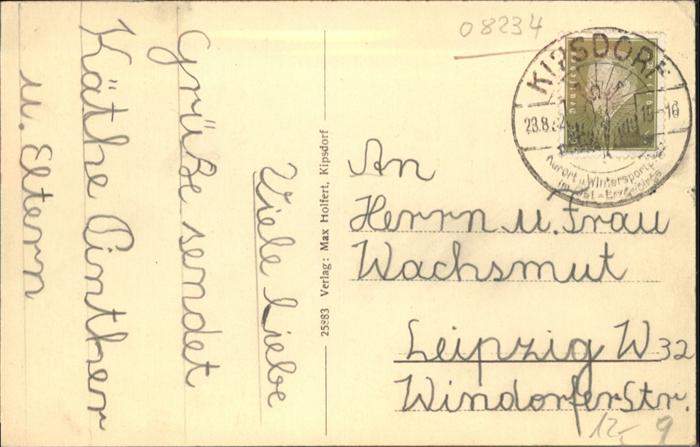 08234
KIPSDORF
Kurort u. Wintersport
Viele liebe
Grüße sendet
Käthe Pinther
u. Eltern
25883 Verlag: Max Holfert, Kipsdorf
An
Herrn u. Frau
Wachsmut
Leipzig W 32
Windorferstr.
12,- 9